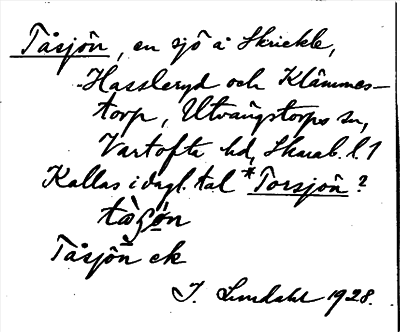 Tåsjön, en sjö å Skrickle,
Hassleryd och Klämmes-
torp, Utvängstorps sn,
Vartofta hd, Skarab. l. 1
Kallas i dagl. tal *Torsjön?
Tåsjön ek
J. Lundahl 1928.